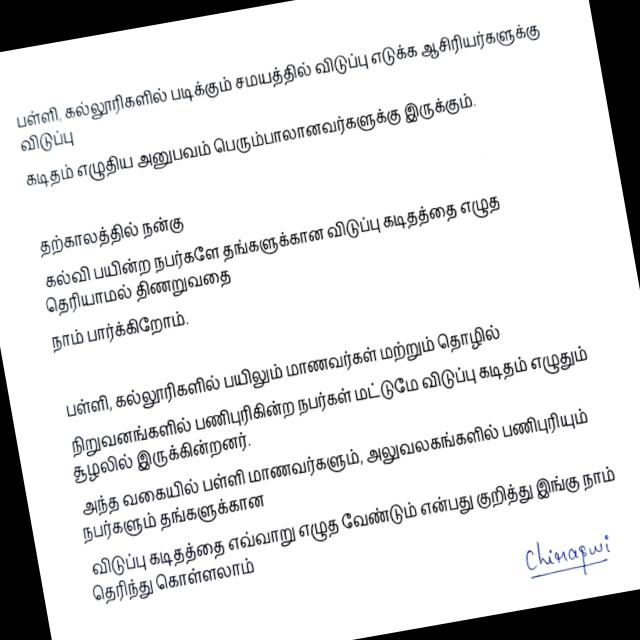 பள்ளி, கல்லூரிகளில் படிக்கும் சமயத்தில் விடுப்பு எடுக்க ஆசிரியர்களுக்கு
விடுப்பு
கடிதம் எழுதிய அனுபவம் பெரும்பாலானவர்களுக்கு இருக்கும்.
தற்காலத்தில் நன்கு
கல்வி பயின்ற நபர்களே தங்களுக்கான விடுப்பு கடிதத்தை எழுத
தெரியாமல் திணறுவதை
நாம் பார்க்கிறோம்.
பள்ளி, கல்லூரிகளில் பயிலும் மாணவர்கள் மற்றும் தொழில்
நிறுவனங்களில் பணிபுரிகின்ற நபர்கள் மட்டுமே விடுப்பு கடிதம் எழுதும்
சூழலில் இருக்கின்றனர்.
அந்த வகையில் பள்ளி மாணவர்களும், அலுவலகங்களில் பணிபுரியும்
நபர்களும் தங்களுக்கான
விடுப்பு கடிதத்தை எவ்வாறு எழுத வேண்டும் என்பது குறித்து இங்கு நாம்
தெரிந்து கொள்ளலாம்